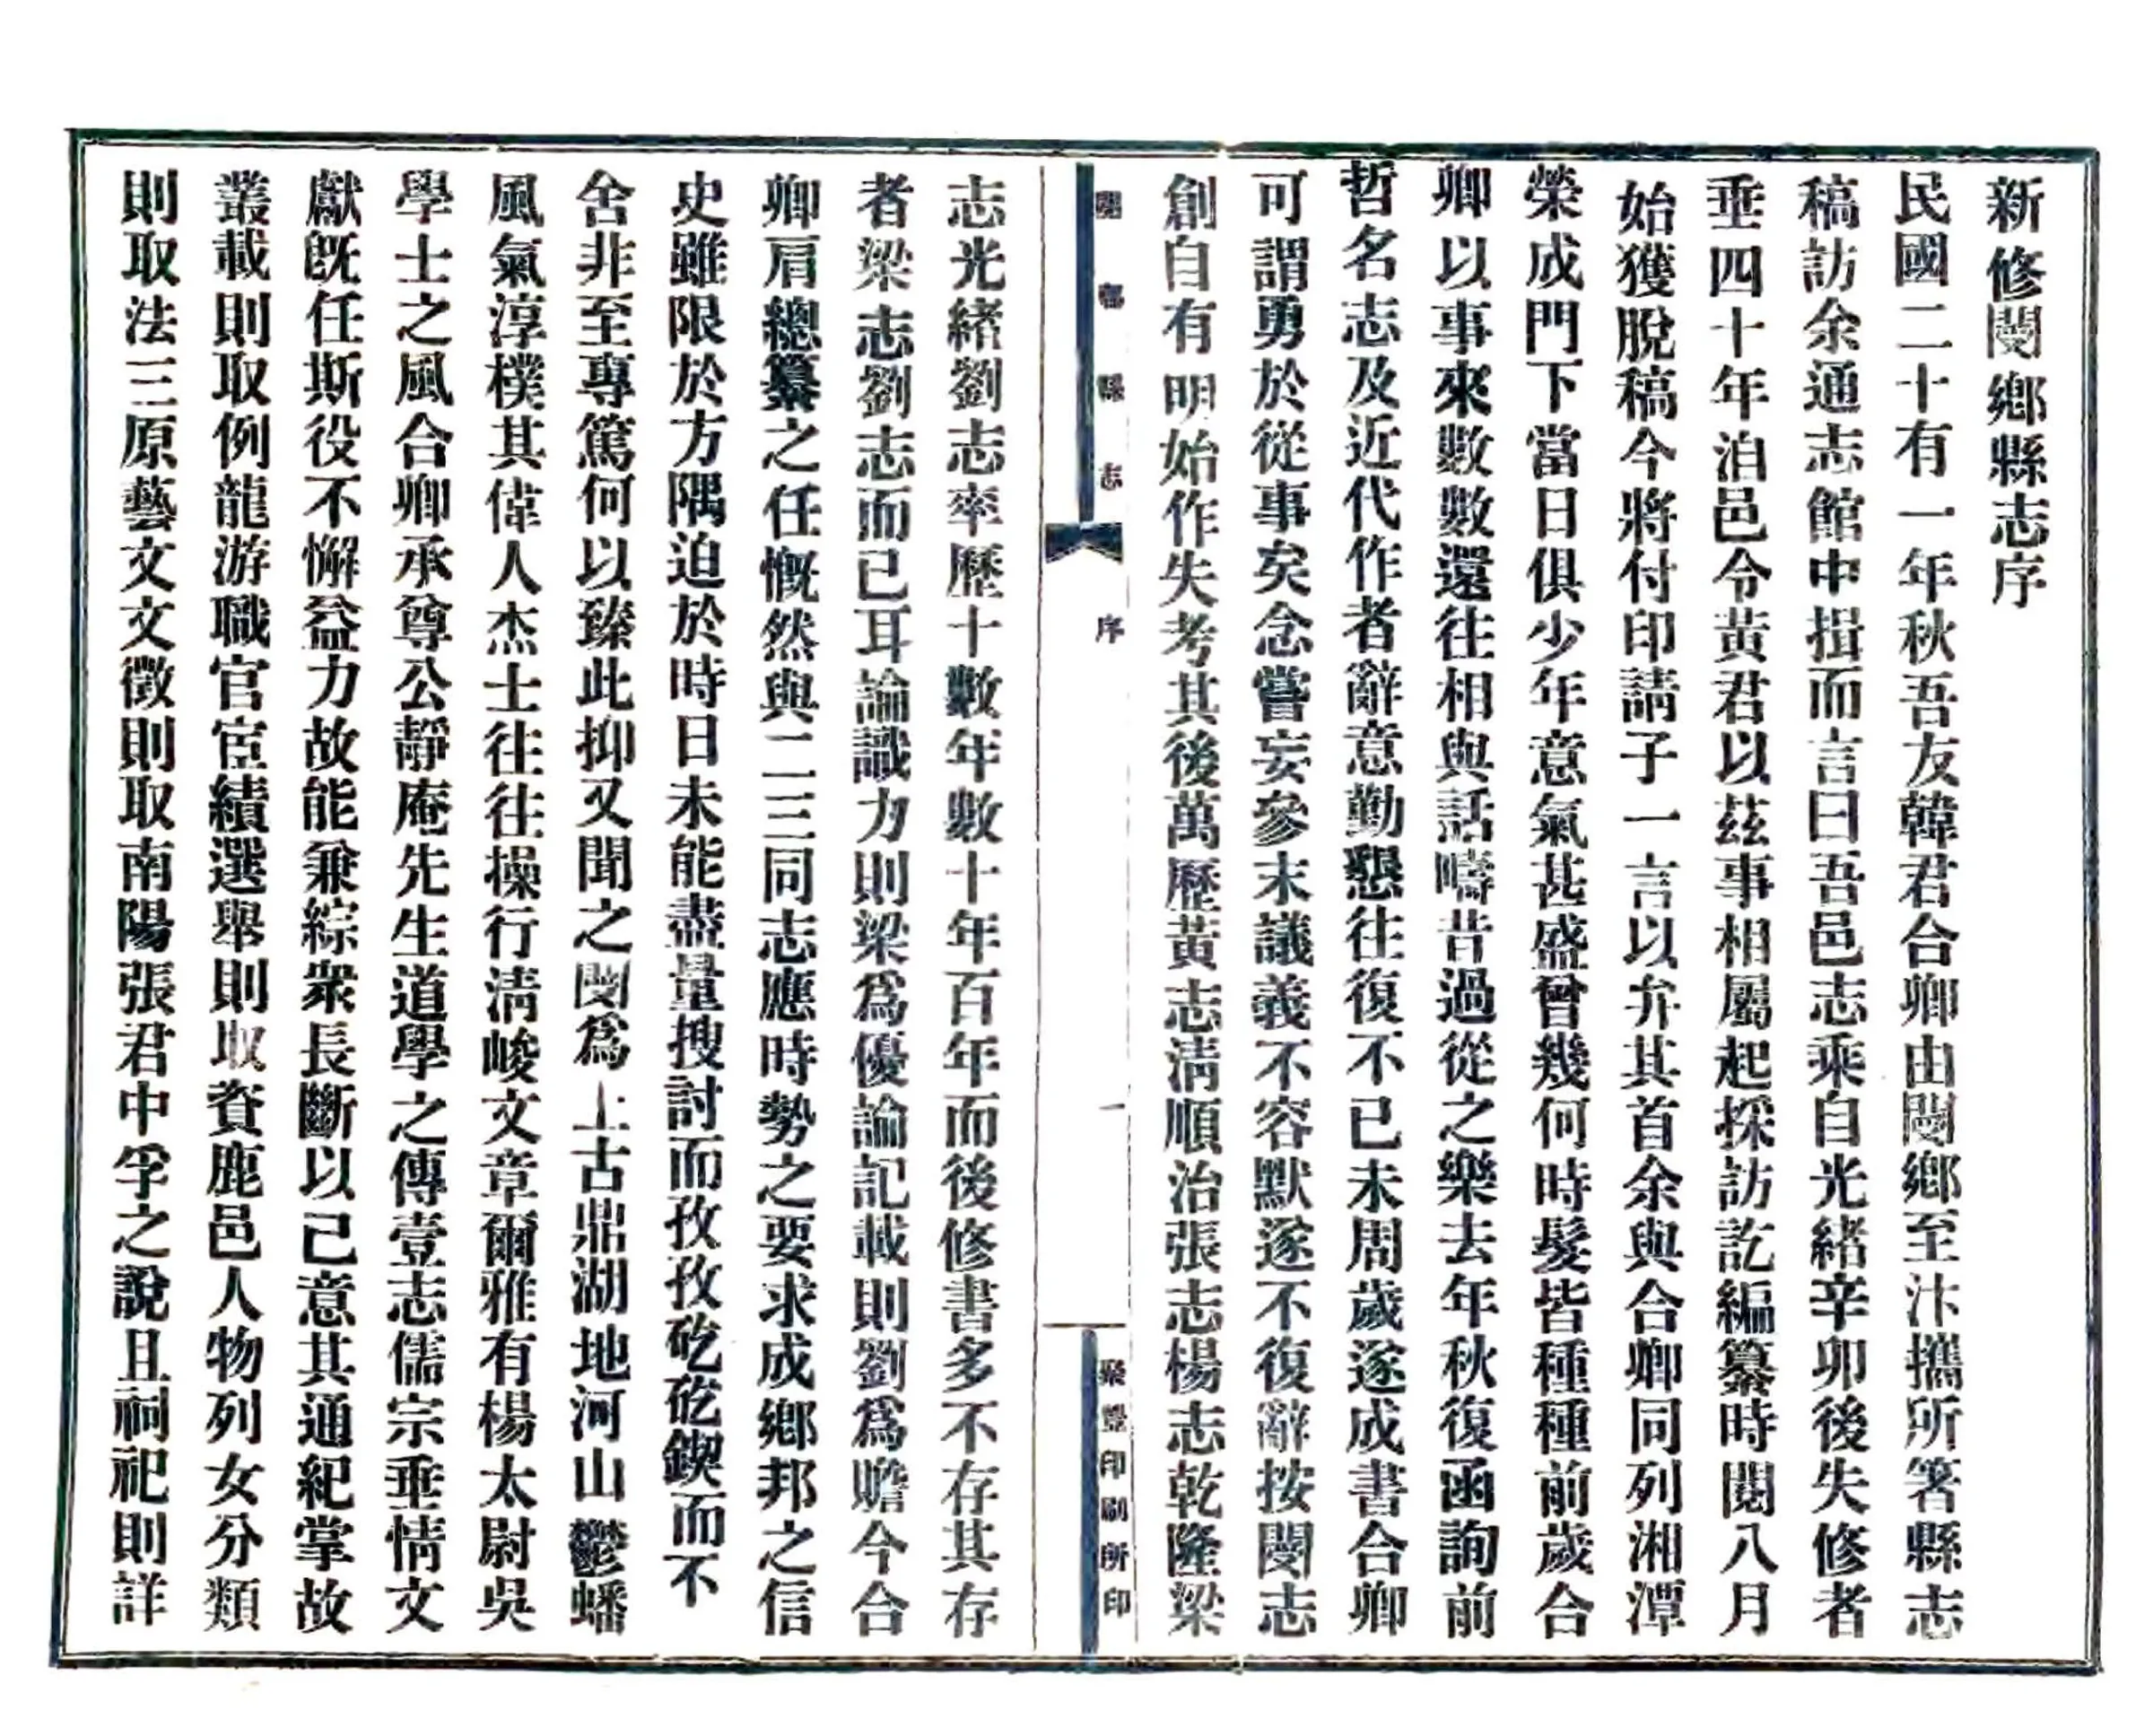 新修閿鄉縣志序
民國二十有一年秋吾友韓君合卿由閿鄉至汴攜所箸縣志
稿訪余通志館中揖而言曰吾邑志乘自光緒辛卯後失修者
垂四十年洎邑令黃君以茲事相屬起採訪訖編纂時閱八月
始獲脫稿今將付印請子一言以弁其首余與合卿同列湘潭
榮成門下當日俱少年意氣甚盛曾幾何時髮皆種種前歲合
卿以事來數數還往相與話疇昔過從之樂去年秋復函詢前
哲名志及近代作者辭意勤懇往復不已未周歲遂成書合卿
可謂勇於從事矣念嘗妄參末議義不容默遂不復辭按閿志
創自有明始作失考其後萬歷黃志清順治張志楊志乾隆梁
閿鄉縣志
序
一
聚豐印刷所印
志光緒劉志率歷十數年數十年百年而後修書多不存其存
者梁志劉志而已耳論識力則梁爲優論記載則劉爲贍今合
卿肩總纂之任慨然與二三同志應時勢之要求成鄉邦之信
史雖限於方隅迫於時日未能盡量搜討而孜孜矻矻鍥而不
舍非至專篤何以臻此抑又聞之閿爲上古鼎湖地河山鬱蟠
風氣淳樸其偉人杰士往往操行清峻文章爾雅有楊太尉吳
學士之風合卿承尊公靜庵先生道學之傳壹志儒宗垂情文
獻旣任斯役不懈益力故能兼綜衆長斷以己意其通紀掌故
叢載則取例龍游職官宦績選舉則取資鹿邑人物列女分類
則取法三原藝文文徵則取南陽張君中孚之說且祠祀則詳